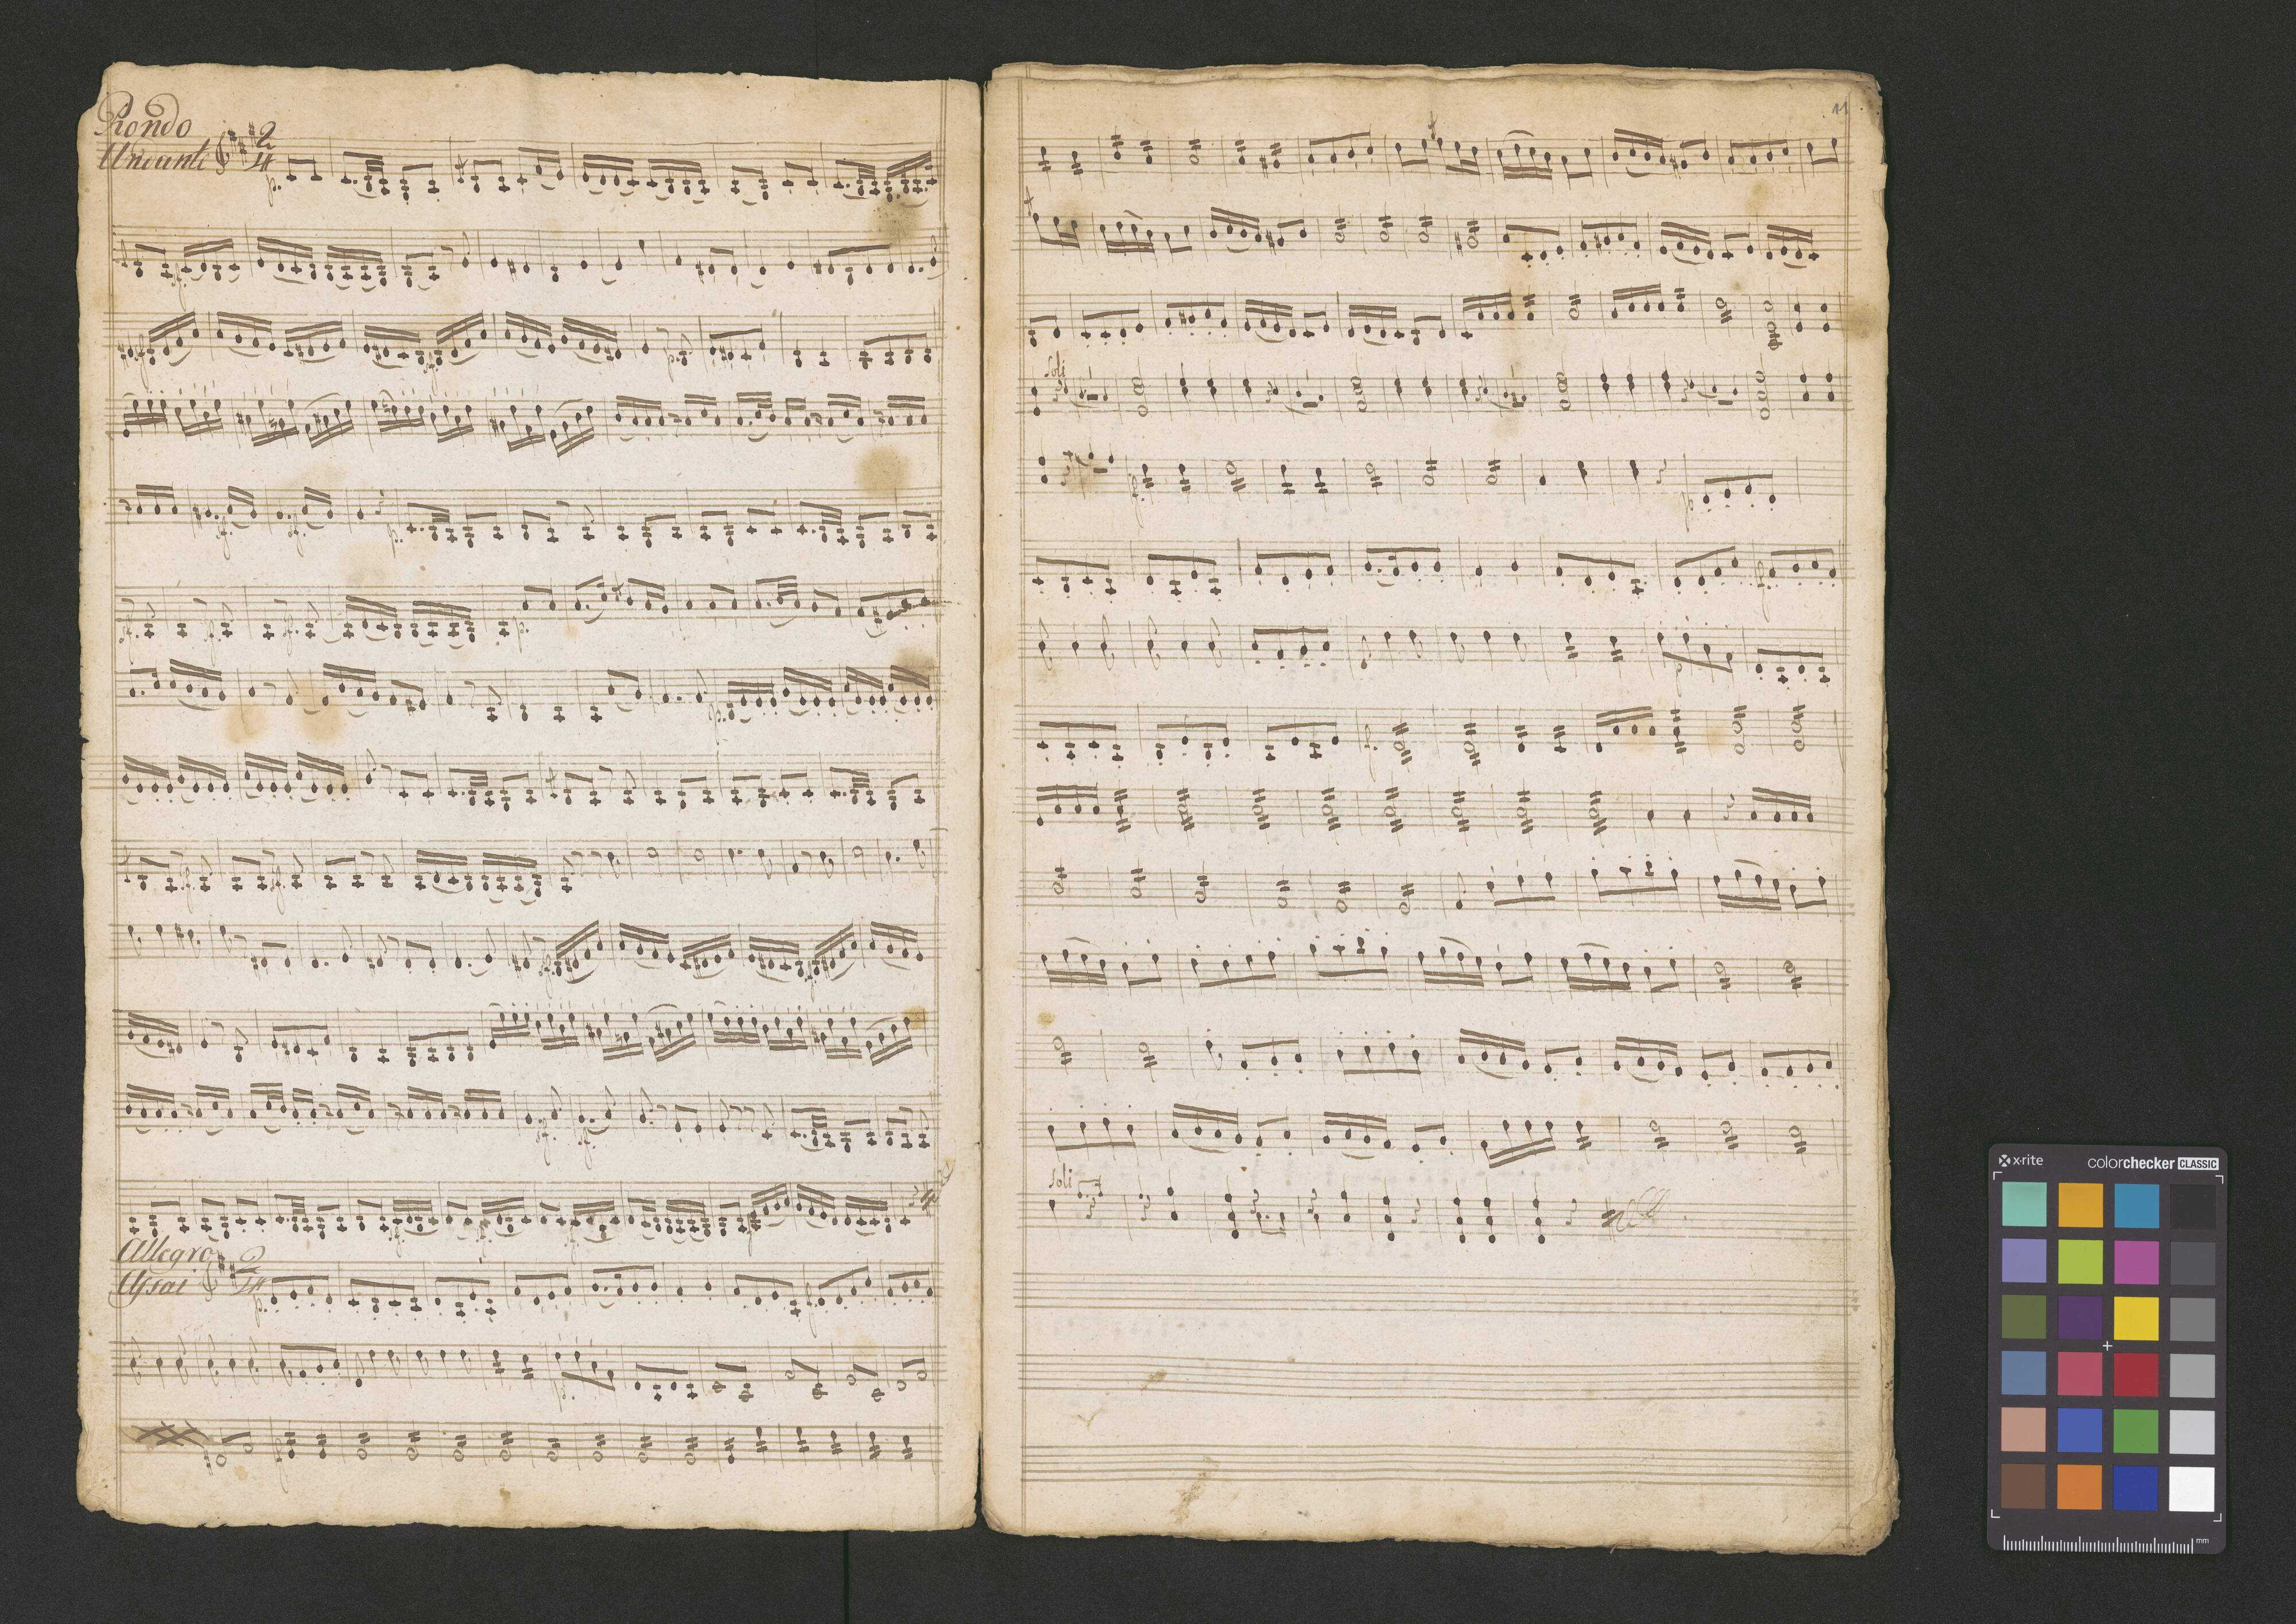 Rondo
Andante 2/4
p.
p.
p.
p.
Allegro
Assai 2/4
p.
11
Soli
p
Soli
x-rite
colorchecker CLASSIC
mm